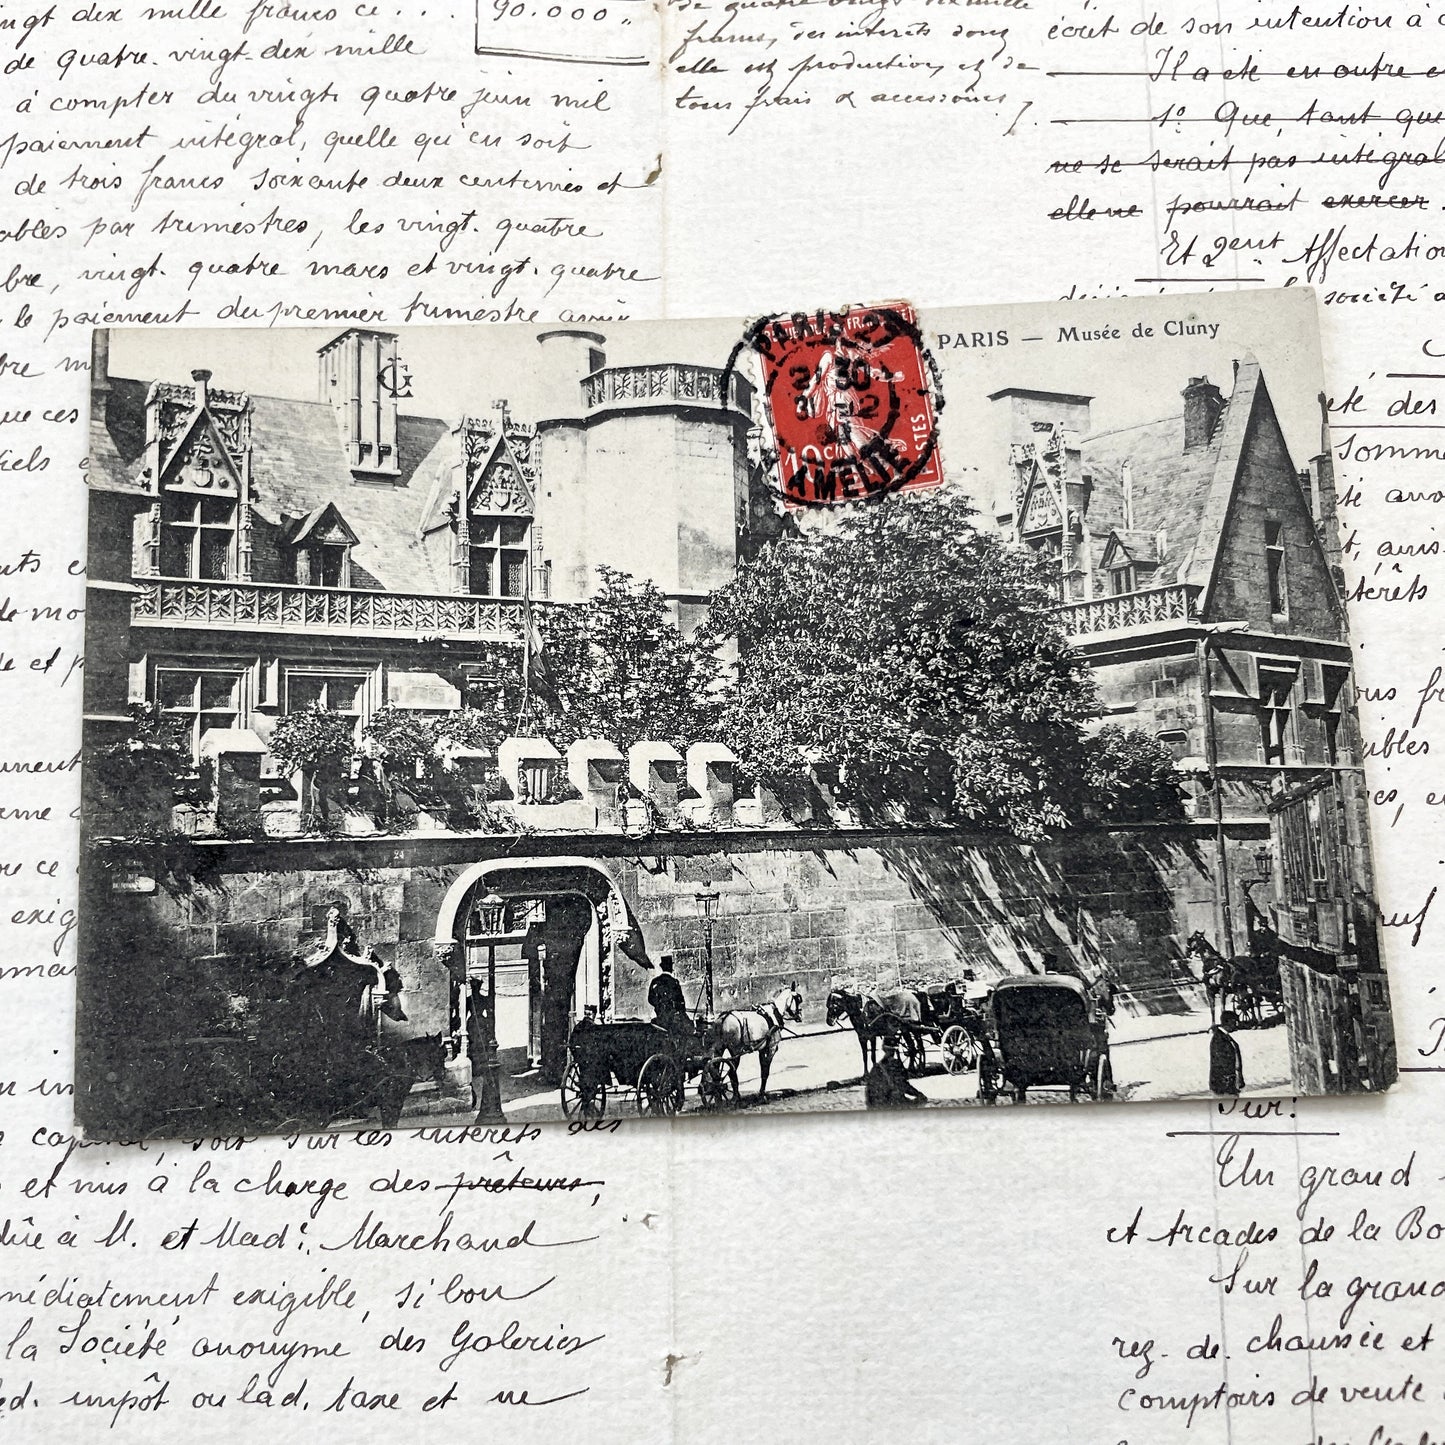 ingt dix mille francs ce . . .
90.000 "
de quatre. vingt. dix mille
à compter du vingt quatre juin mil
paiement intégral, quelle qu'en soit
de trois francs soixante deux centimes et
ables par trimestres, les vingt. quatre
bre, vingt. quatre mars et vingt. quatre
le paiement du premier trimestre
de quatre vingt dix mille
francs, des intérêts dont
elle est production, et de
tous frais & accessoires
écret de son intention à
Il a été en outre
1º Que, tant que
ne se serait pas intégral
elle ne pourrait exercer
Et 2ent Affectation
société a
PARIS — Musée de Cluny
LG
PARIS 27
30
31 -12
R. AMELIE
10
POSTES
24
été des
Somme
été
it, ainsi
ntérêts
ous fr
uibles
ies, e
euf
bre m
ue ces
iels
nts
de mo
de et p
ument
orme
re ce
exig
mma
n in
capital, soit sur les intérêts des
et mis à la charge des prêteurs,
dûe à M. et Made. Marchand
médiatement exigible, si bon
la Société anonyme des Galeries
ed. impôt ou lad. taxe et ne
Sur:
Un grand
et Arcades de la Bo
Sur la grand
rez. de. chaussée et
comptoirs de vente